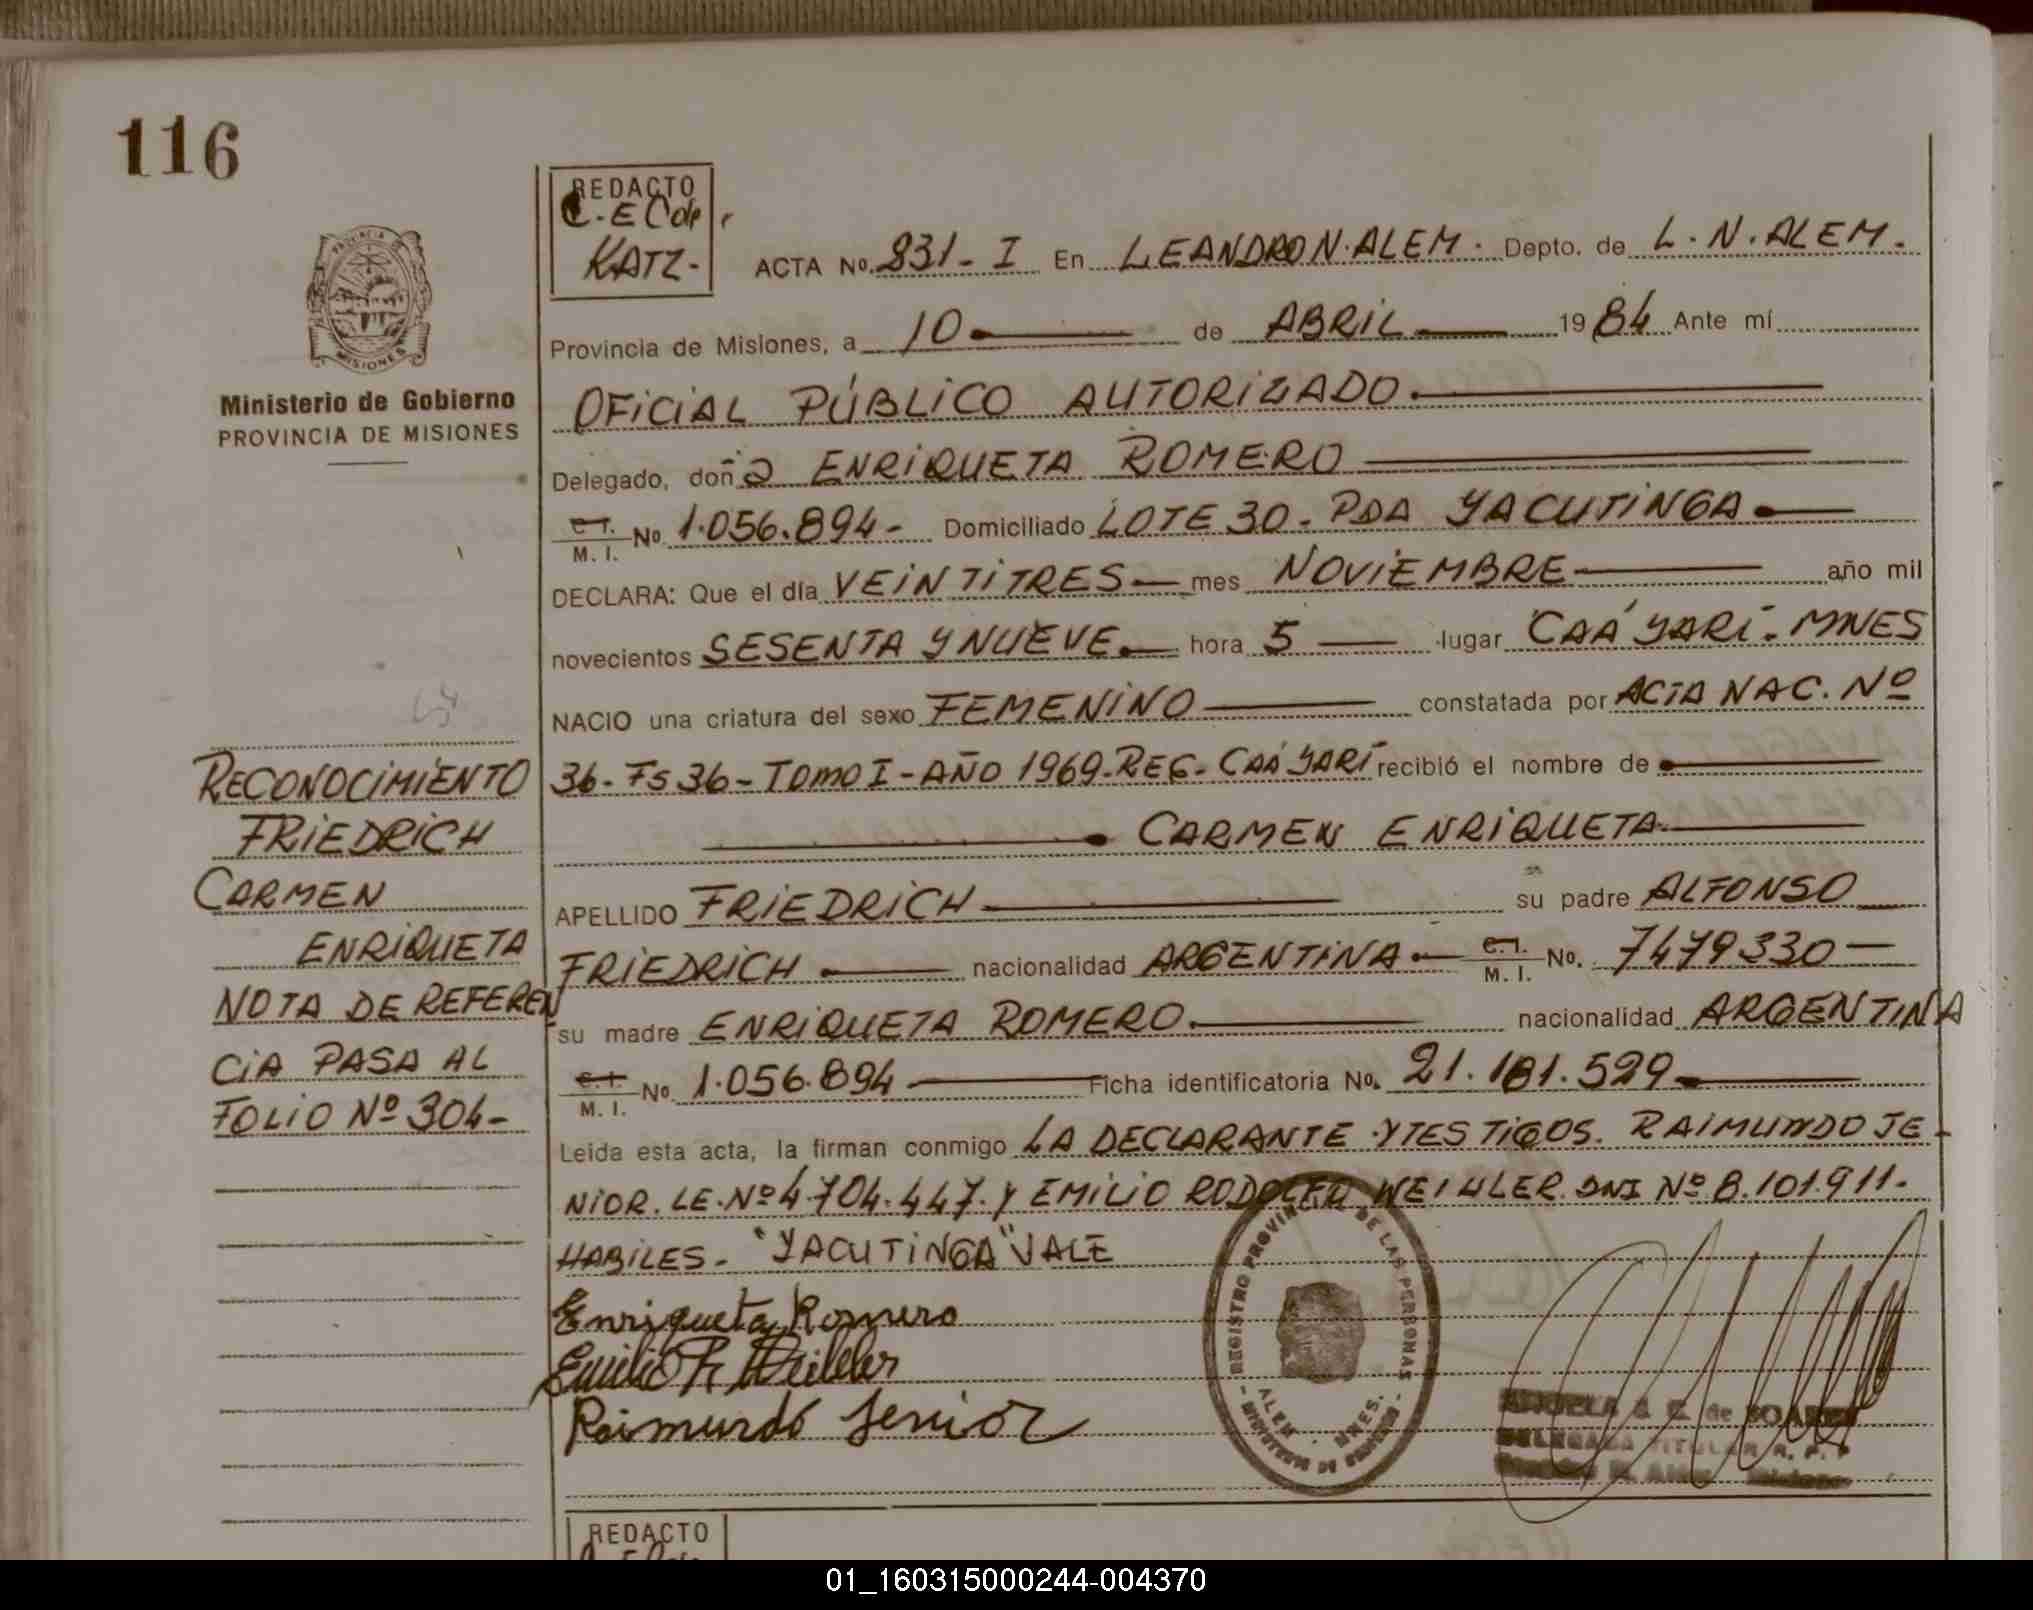 116
REDACTO
C. E C de
KATZ-
ACTA No. 831-I En LEANDRO N. ALEM. Depto. de L. N. ALEM.
PROVINCIA DE
MISIONES
Ministerio de Gobierno
PROVINCIA DE MISIONES
Provincia de Misiones, a 10 de ABRIL 1984 Ante mí
OFICIAL PÚBLICO AUTORIZADO
Delegado, doña ENRIQUETA ROMERO
C. I. M. I. No 1.056.894- Domiciliado LOTE 30. PDA YACUTINGA
DECLARA: Que el día VEINTITRES mes NOVIEMBRE año mil
novecientos SESENTA Y NUEVE. hora 5 lugar CAÁ YARÍ. MNES
NACIO una criatura del sexo FEMENINO constatada por ACTA NAC. Nº
36- Fs 36- TOMO I- AÑO 1969- REG- CAÁ YARÍ recibió el nombre de
CARMEN ENRIQUETA
APELLIDO FRIEDRICH su padre ALFONSO
FRIEDRICH nacionalidad ARGENTINA C. I. M. I. No. 7479330
su madre ENRIQUETA ROMERO nacionalidad ARGENTINA
C. I. M. I. No 1.056.894 Ficha identificatoria No. 21.181.529
Leída esta acta, la firman conmigo LA DECLARANTE Y TESTIGOS. RAIMUNDO JE-
NIOR. LE. Nº 4.704.447. Y EMILIO RODOLFO WEIHLER DNI Nº 8.101.911.
HABILES. "YACUTINGA" VALE
RECONOCIMIENTO
FRIEDRICH
CARMEN
ENRIQUETA
NOTA DE REFEREN
CIA PASA AL
FOLIO Nº 304-
Enriqueta Romero
Emilio R Weihler
Raimundo Jenior
REGISTRO PROVINCIAL DE LAS PERSONAS
ALEM. MNES.
MINISTERIO DE GOBIERNO
de SOARES
DELEGADA TITULAR R. P. P
N. Alem Misiones
REDACTO
01_160315000244-004370